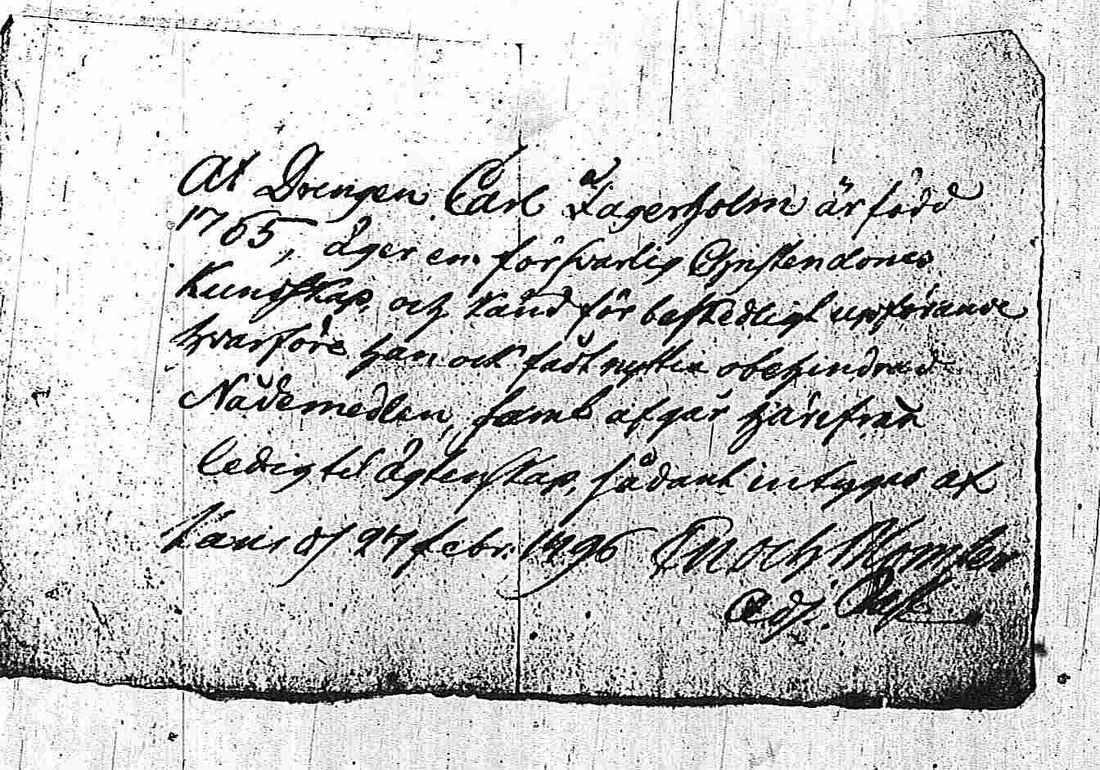 At Drengen Carl Jagerholm är född
1765, äger en försvarlig Christendoms
Kunskap, och känd för beskedligt upförande
hvarföre han ock fådt nyttia obehindrad
Nådemedlen, samt afgår härifrån
ledig til ägtenskap, sådant intygas af
d 27 febr. 1796 Enoch
Adj. Past